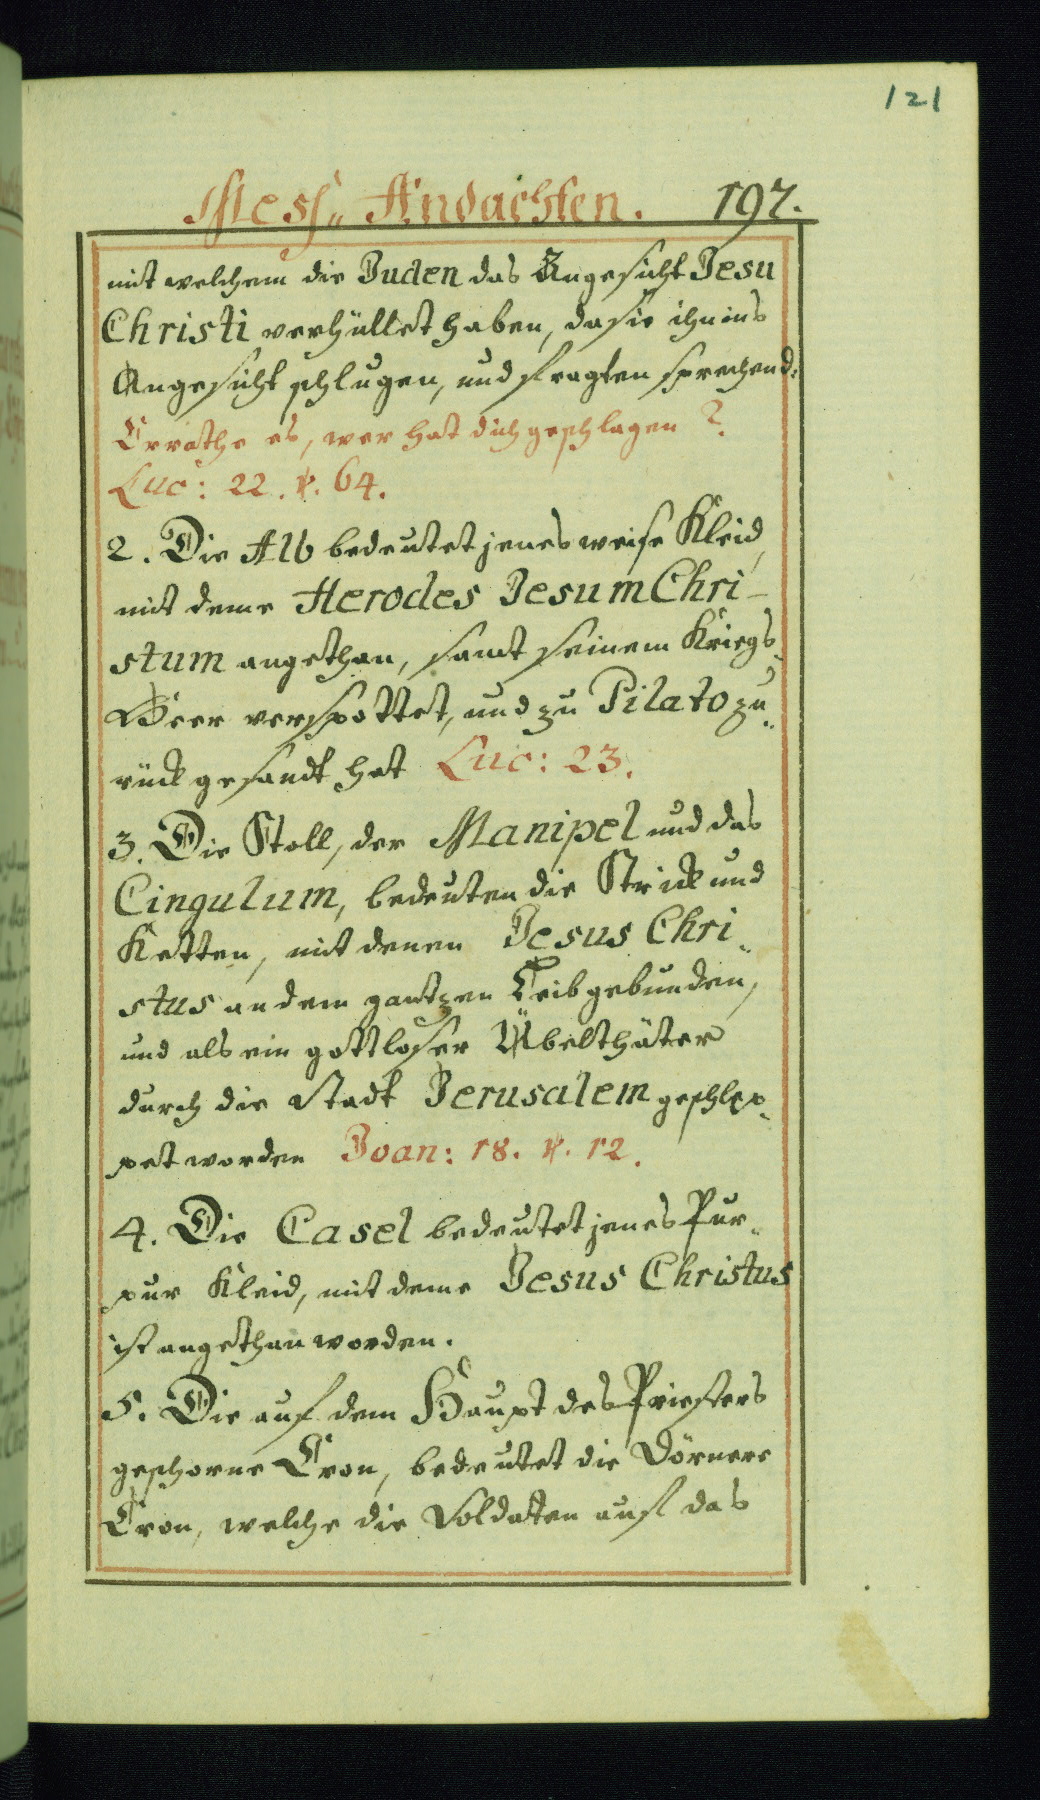 121
Mess„ Andachten. 197.
mit welchem die Juden das Angesicht Jesu
Christi verhüllet haben, da sie ihn ins
Angesicht schlugen, und fragten sprechend:
Errathe es, wer hat dich geschlagen?
Luc: 22. ℣. 64.
2. Die Alb bedeutet jenes weise Kleid,
mit deme Herodes Jesum Chri-
stum angethan, samt seinem Kriegs„
Heer verspottet, und zu Pilato zu„
rück gesandt hat Luc: 23.
3. Die Stoll, der Manipel und das
Cingulum, bedeuten die Strick und
Ketten, mit denen Jesus Chri„
stus an dem gantzen Leib gebunden,
und als ein gottloser Übelthäter
durch die Stadt Jerusalem geschlep„
pet worden Joan: 18. ℣. 12.
4. Die Casel bedeutet jenes Pur„
pur Kleid, mit deme Jesus Christus
ist angethan worden.
5. Die auf dem Haupt des Priesters
geschorne Cron, bedeutet die Dörnere
Cron, welche die Soldaten auf das